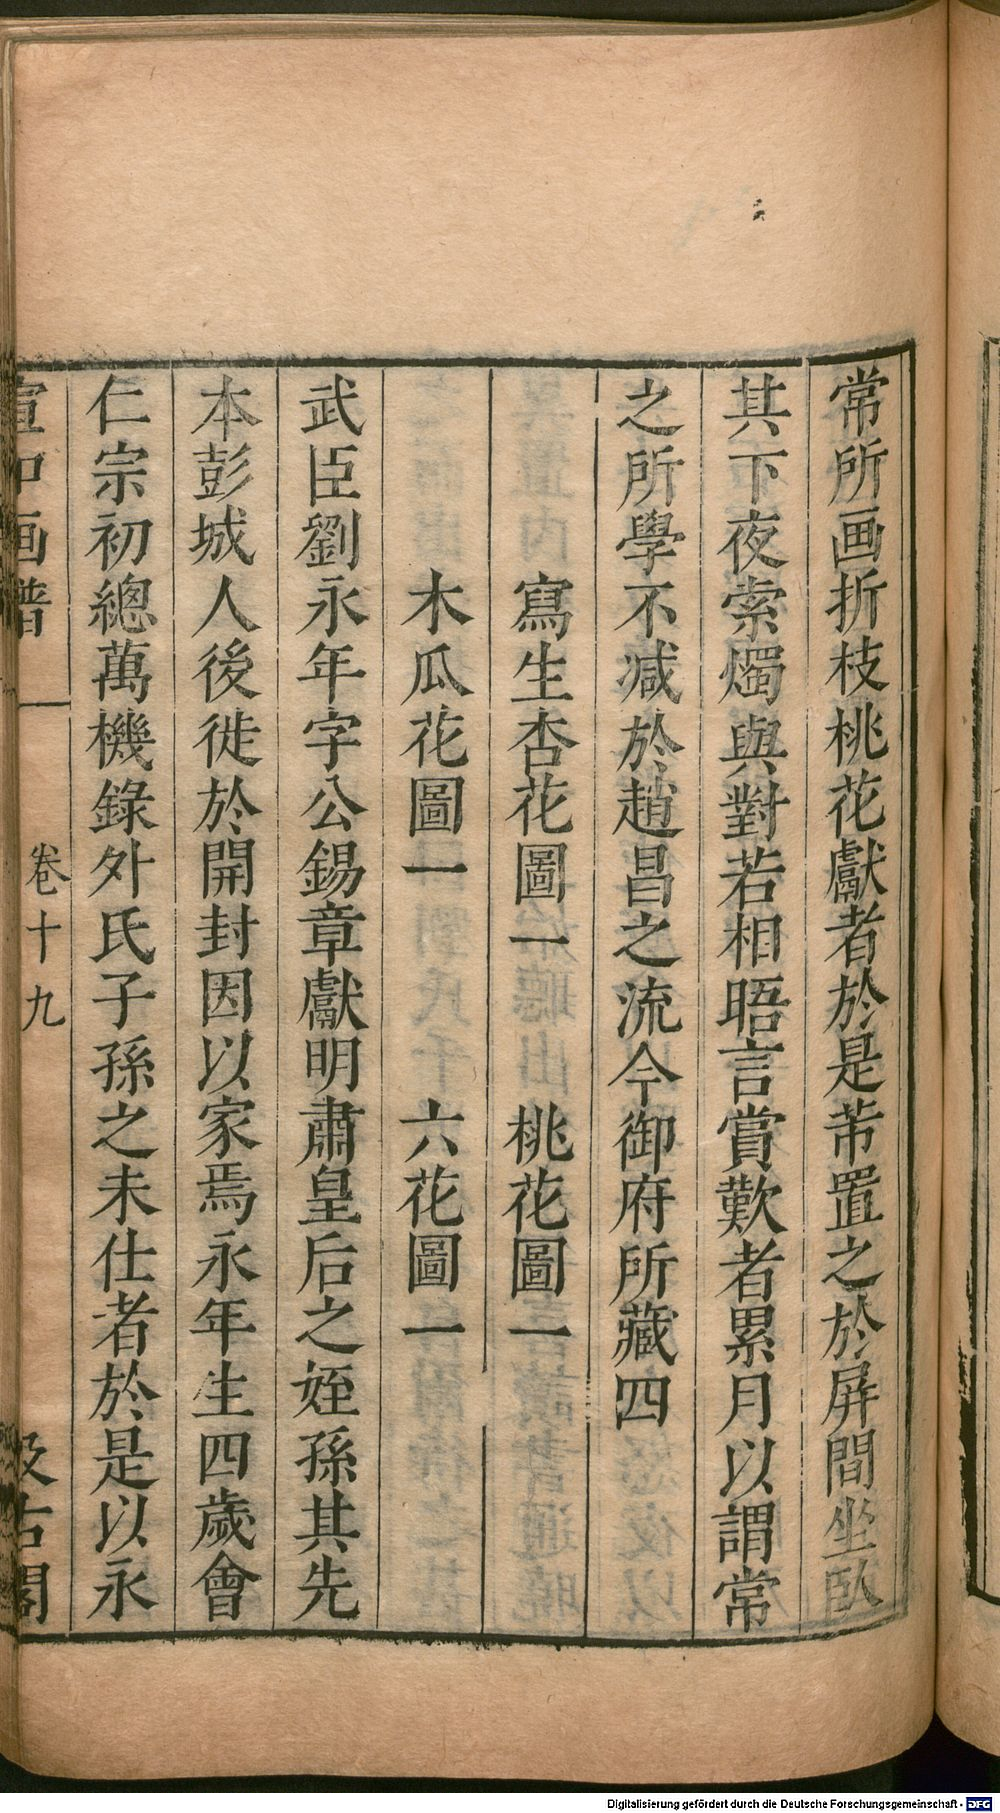 常所画折枝桃花獻者於是芾置之於屏間坐臥
其下夜索燭與對若相晤言賞歎者累月以謂常
之所學不減於趙昌之流今御府所藏四
寫生杏花圖一 桃花圖一
木瓜花圖一 六花圖一
武臣劉永年字公錫章獻明肅皇后之姪孫其先
本彭城人後徙於開封因以家焉永年生四歲會
仁宗初總萬機錄外氏子孫之未仕者於是以永
宣和画譜 卷十九 汲古閣
Digitalisierung gefördert durch die Deutsche Forschungsgemeinschaft - DFG